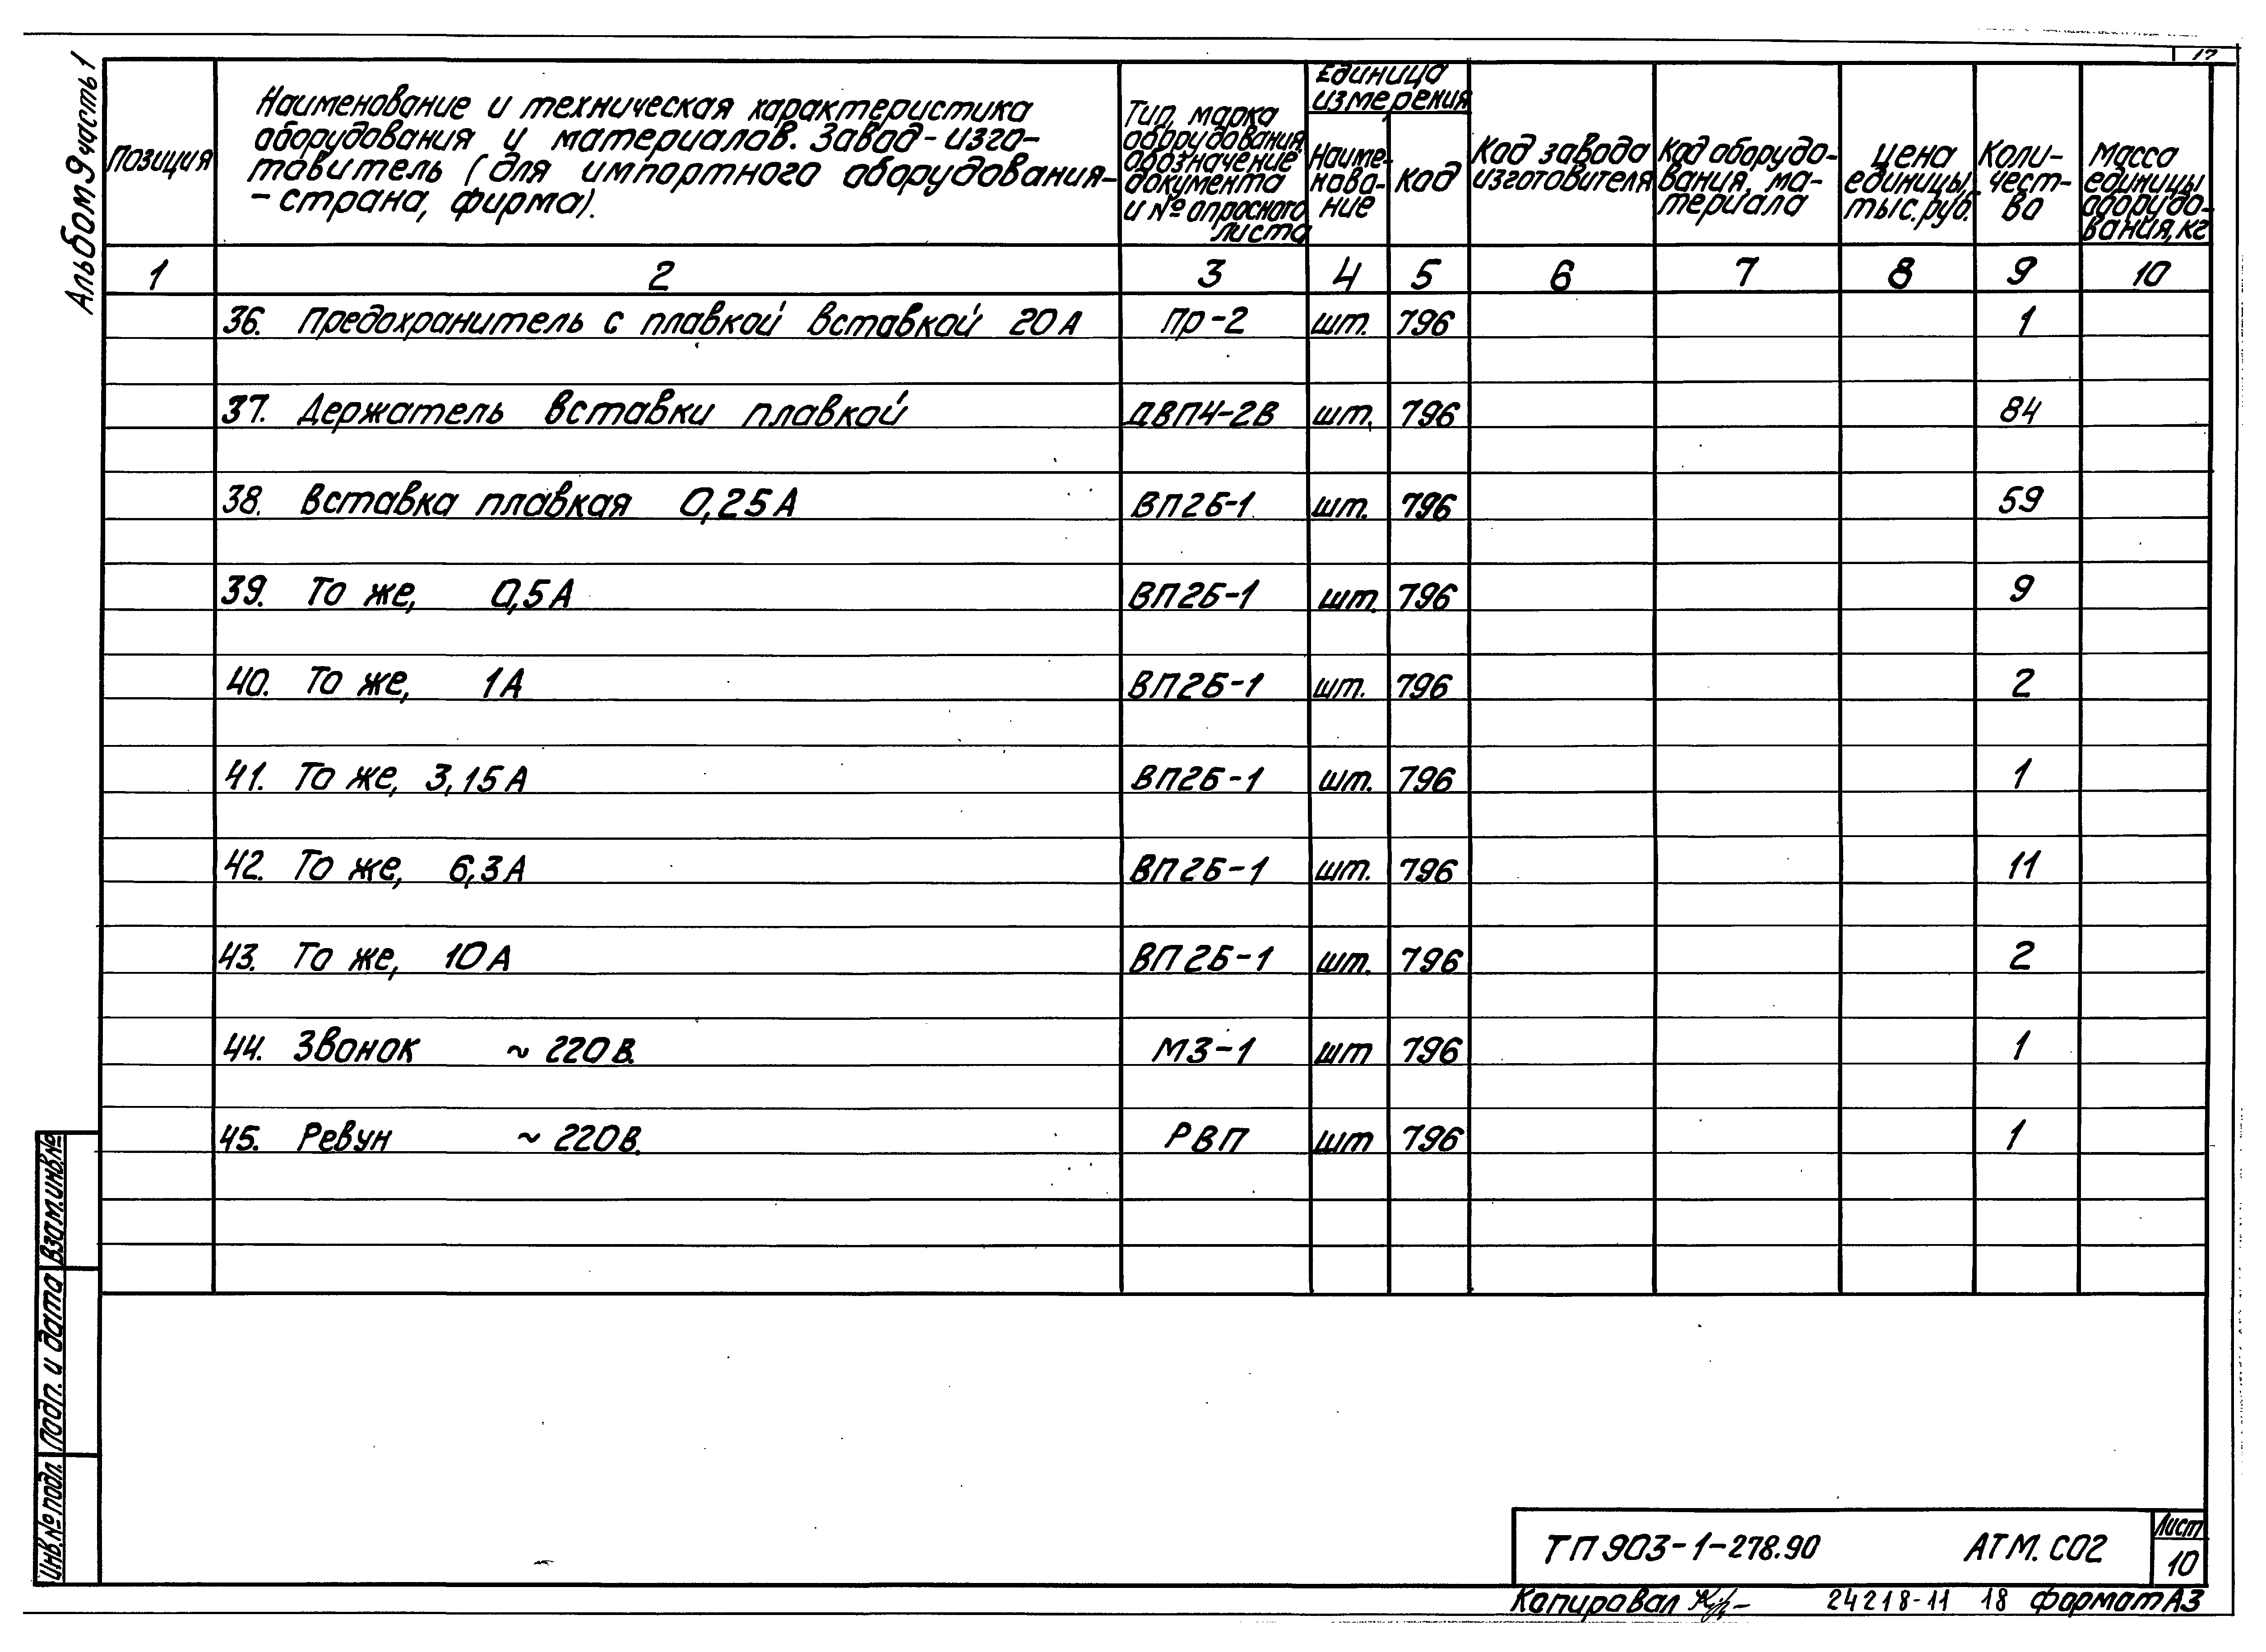 17
Альбом 9 часть 1
Позиция
Наименование и техническая характеристика
оборудования и материалов. Завод-изго-
товитель (для импортного оборудования-
-страна, фирма).
Тип, марка
оборудования,
обозначение
документа
и № опросного
листа
Единица
измерения
Наиме-
нова-
ние
Код
Код завода
изготовителя
Код оборудо-
вания, ма-
териала
Цена
единицы,
тыс. руб.
Коли-
чест-
во
Масса
единицы
оборудо-
вания, кг
1 2 3 4 5 6 7 8 9 10
36. Предохранитель с плавкой вставкой 20А ПР-2 шт. 796 1
37. Держатель вставки плавкой ДВП4-2В шт. 796 84
38. Вставка плавкая 0,25А ВП2Б-1 шт. 796 59
39. То же, 0,5А ВП2Б-1 шт. 796 9
40. То же, 1А ВП2Б-1 шт. 796 2
41. То же, 3,15А ВП2Б-1 шт. 796 1
42. То же, 6,3А ВП2Б-1 шт. 796 11
43. То же, 10А ВП2Б-1 шт. 796 2
44. Звонок ~ 220В. МЗ-1 шт 796 1
45. Ревун ~ 220В. РВП шт 796 1
Взам. инв. №
Подп. и дата
Инв. № подл.
ТП 903-1-278.90 АТМ. СО2
Лист
10
Копировал 24218-11 18 Формат А3